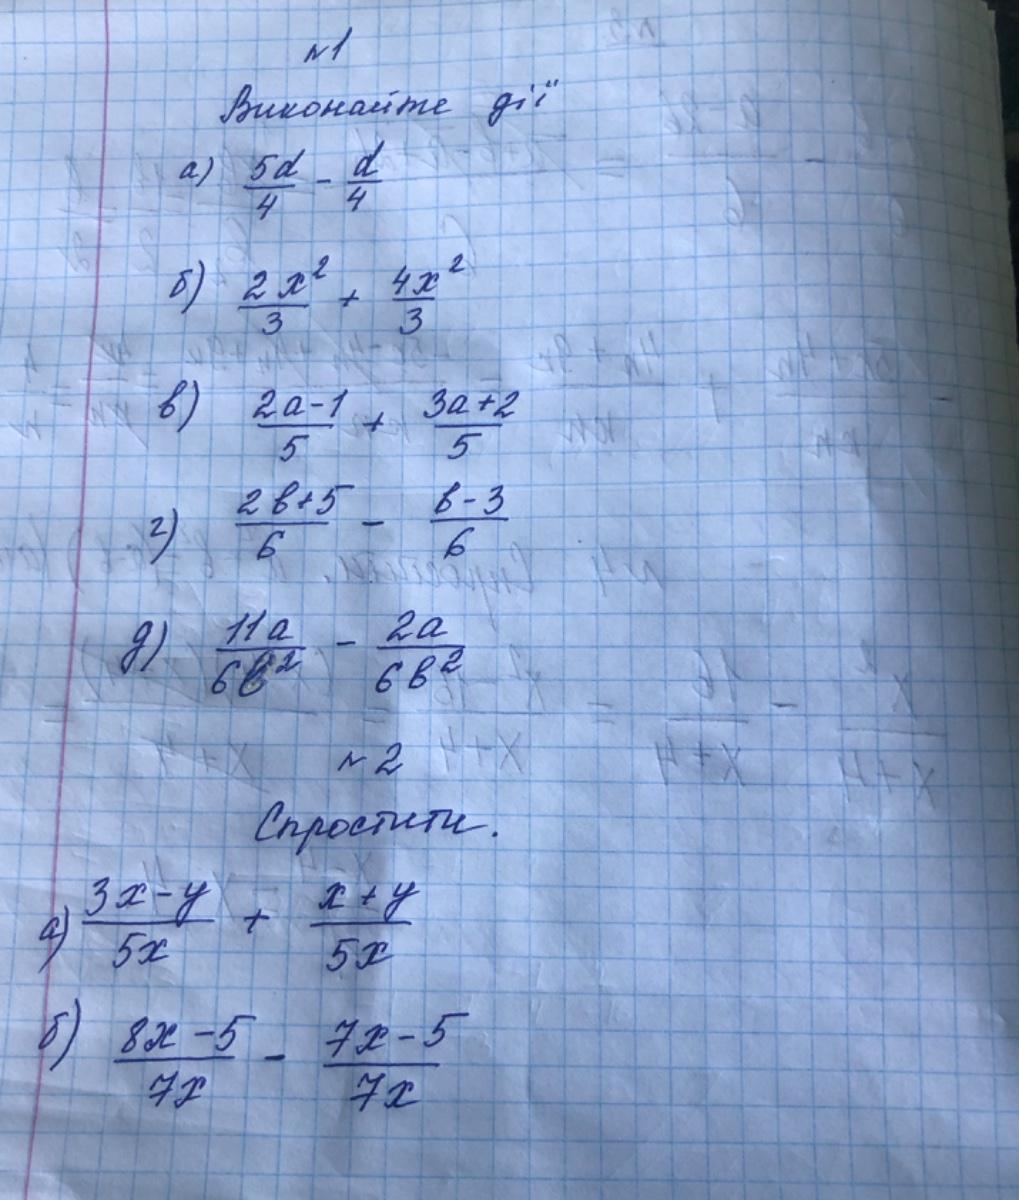 №1
Виконайте дії
а) 5d/4 - d/4
б) 2x²/3 + 4x²/3
в) 2a-1/5 + 3a+2/5
г) 2b+5/6 - b-3/6
д) 11a/6b² - 2a/6b²
№2
Спростити.
а) 3x-y/5x + x+y/5x
б) 8x-5/7x - 7x-5/7x